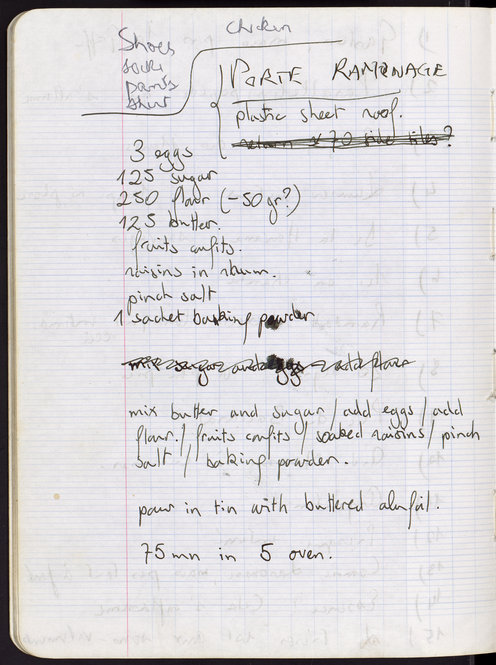 chicken
Shoes
socks
pants
shirt
PORTE RAMONAGE
plastic sheet roof.
return x 70 tiles?
3 eggs
125 sugar
250 flour (-50gr?)
125 butter.
fruits confits.
raisins in rhum.
pinch salt
1 sachet baking powder
mix sugar and eggs add flour
mix butter and sugar / add eggs / add
flour. / fruits confits / soaked raisins / pinch
salt / baking powder.
pour in tin with buttered alufoil.
75 mn in 5 oven.